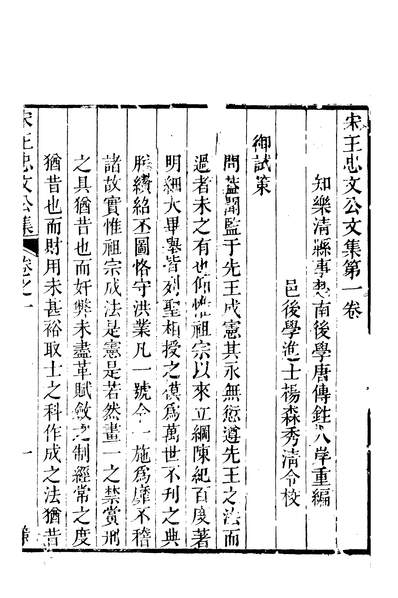 宋王忠文公文集第一卷
知樂清縣事楚南後學唐傳鉎八學重編
邑後學進士楊森秀清令校
御試策
問蓋聞監于先王成憲其永無愆遵先王之法而
過者未之有也仰惟祖宗以來立綱陳紀百度著
明細大畢舉皆列聖相授之謨為萬世不刊之典
朕纘紹丕圖恪守洪業凡一號令一施為靡不稽
諸故實惟祖宗成法是憲是若然畫一之禁賞刑
之具猶昔也而奸弊未盡革賦斂之制經常之度
猶昔也而財用未甚裕取士之科作成之法猶昔
宋王忠文公集
卷之一
一